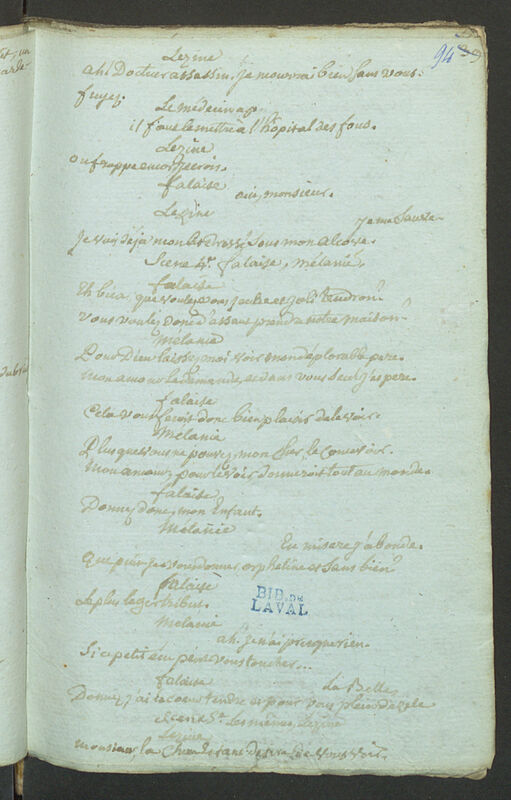 94
Lezine
ah! Docteur assassin. je mourrai bien sans vous.
fuyez.
Le médecin
il faut le mettre à l'hôpital des fous.
Lezine
on frappe encor je crois.
falaise
oui, monsieur.
Lezine
je me sauve
Je vois déjà mon lit dressé sous mon alcove.
Scene 4e. falaise, mélanie,
falaise
Eh bien, que voulez vous jeune et joli tendron?
Vous voulez donc d'assaut prendre notre maison?
Mélanie
Pour Dieu laissez moi voir mon déplorable pere.
Mon amour le demande, et dans vous seul j'espere.
falaise
Cela vous feroit donc bien plaisir de le voir.
Mélanie
Plus que vous ne pouvez, mon cher, le concevoir.
Mon amour, pour le voir donneroit tout au monde.
falaise
Donnez donc, mon Enfant.
Mélanie
En misere j'abonde.
Que puis-je vous donner orpheline et sans bien?
falaise
Le plus leger tribut.
Mélanie
ah. je n'ai presque rien.
Si ce petit écu peut vous toucher...
falaise
La Belle,
Donnez, j'ai le coeur tendre et pour vous plein de zele
Scene 5e. Les mêmes, Lezine
Lezine
Monsieur, la
BIB. DE
LAVAL